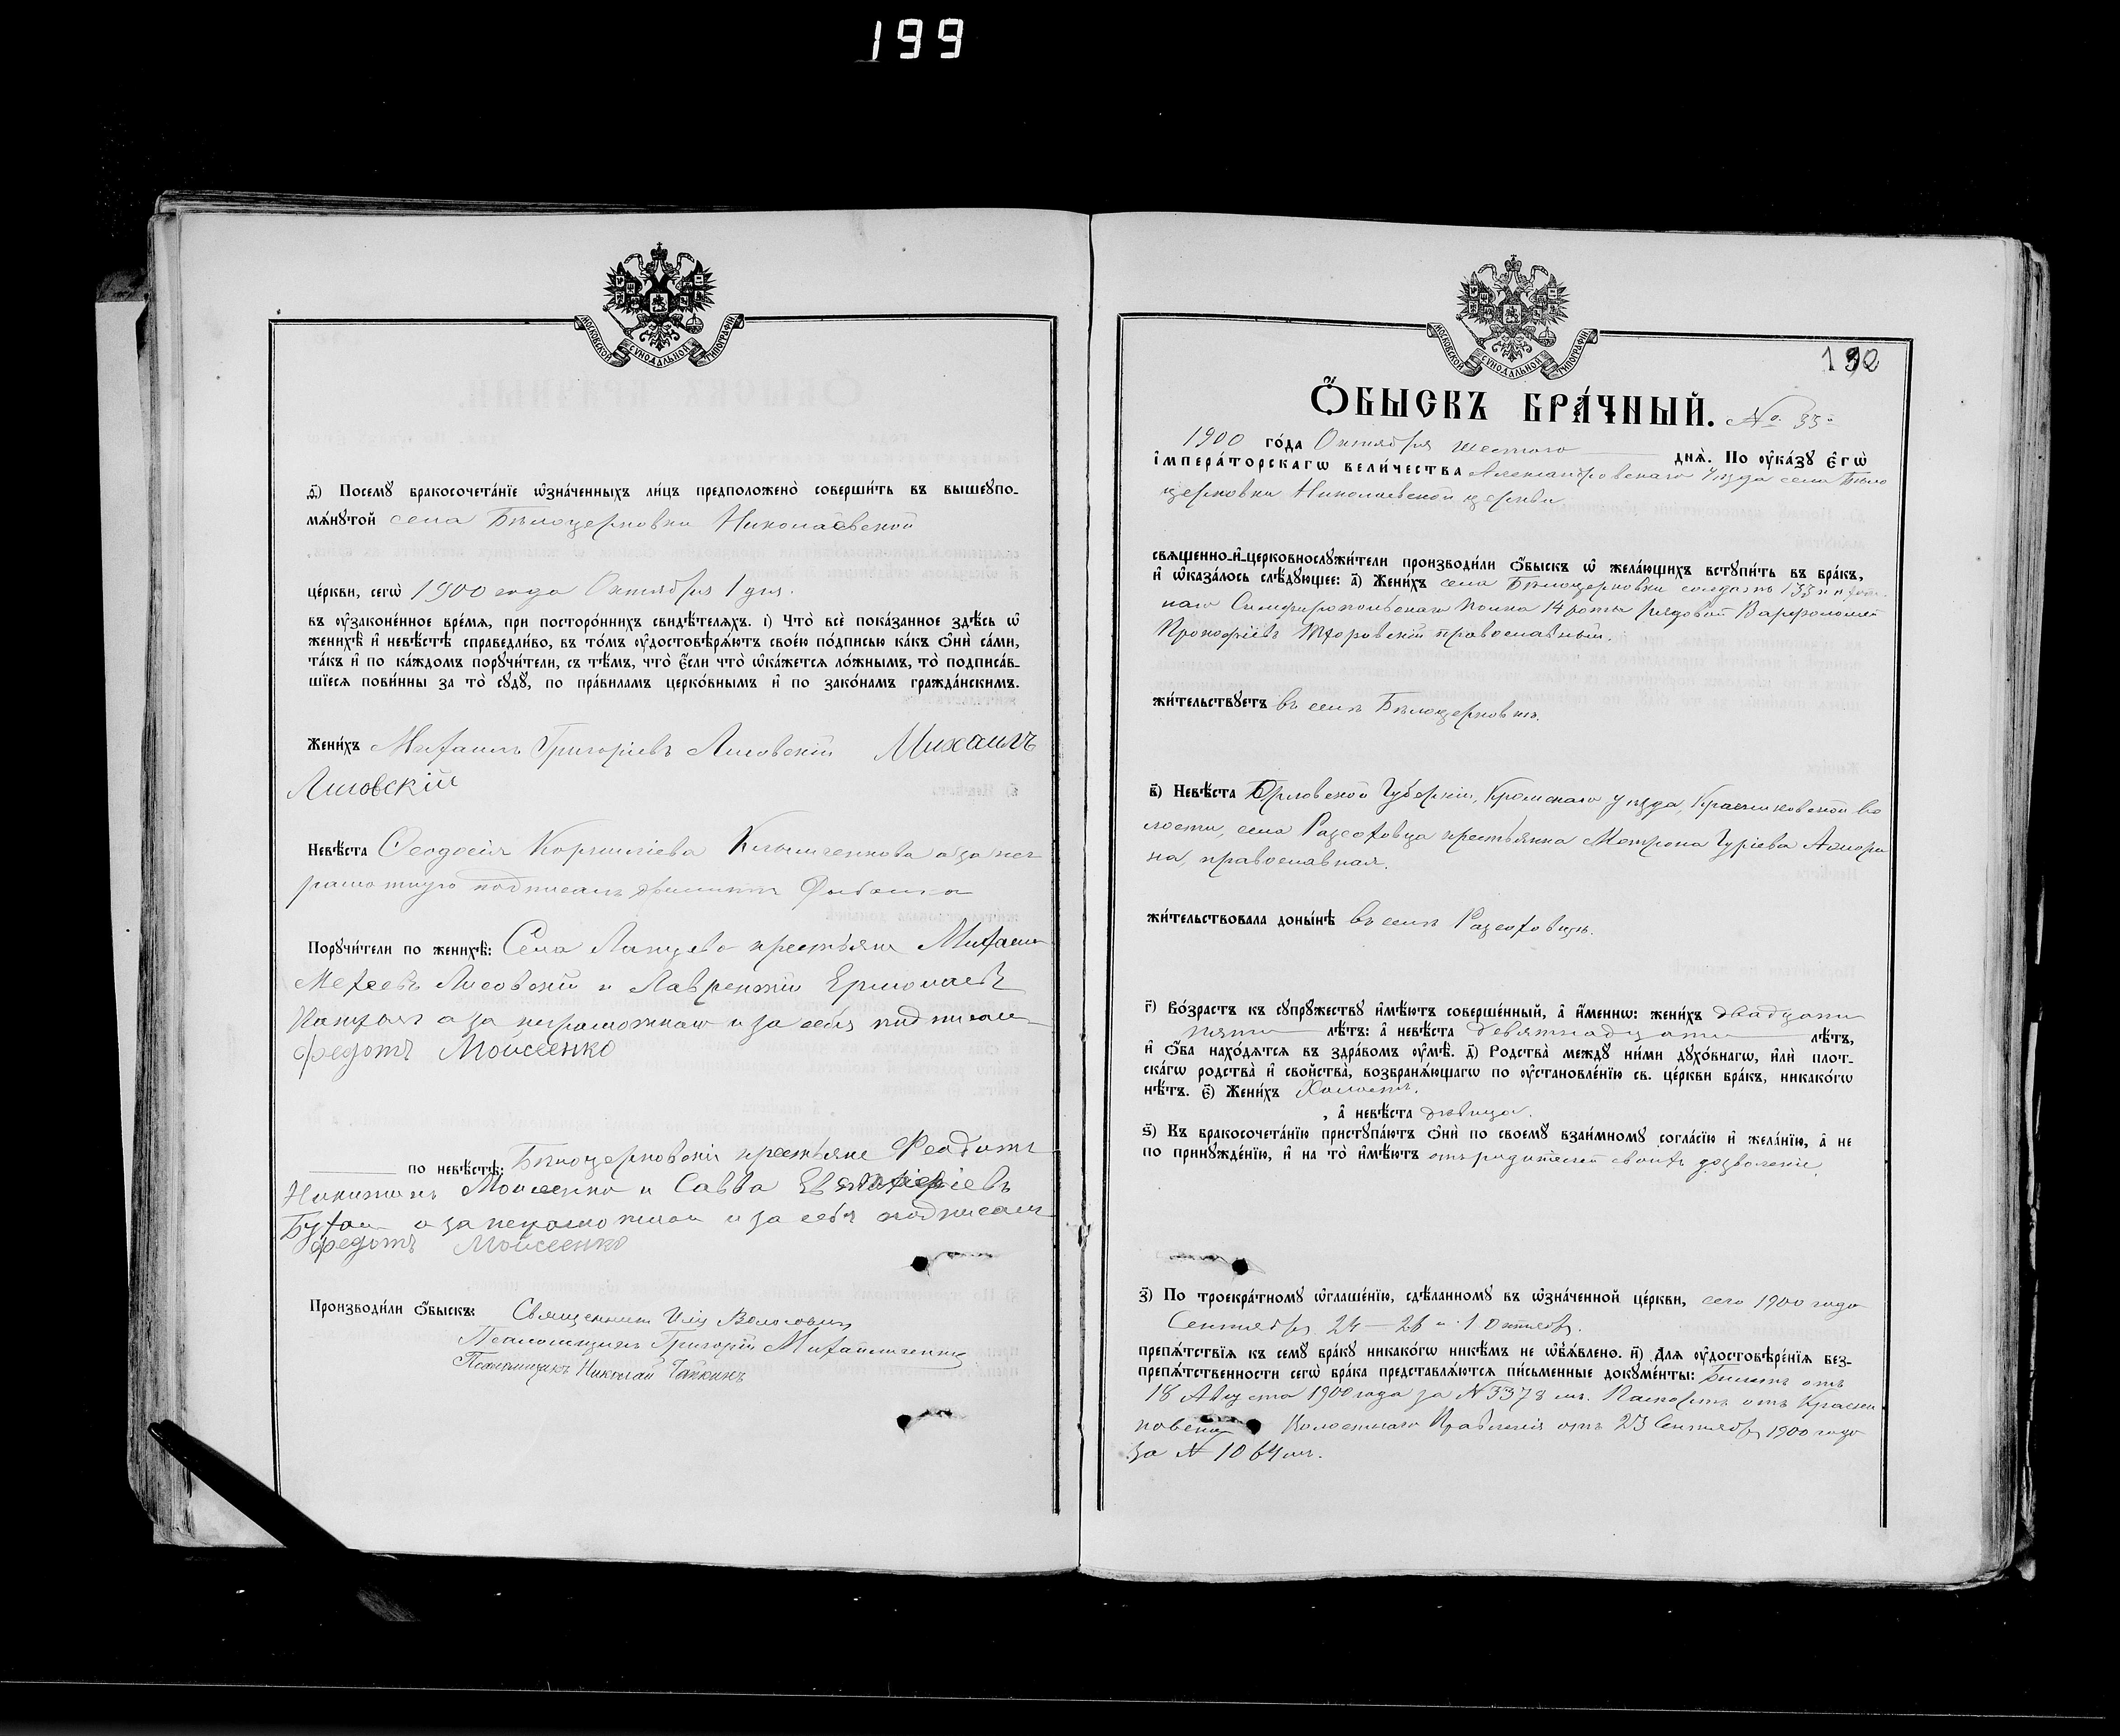 199
МОСКОВСКОЙ СѴНОДАЛЬНОЙ ТИПОГРАФІИ
ѳ҃) Посемꙋ бракосочета́нїе ѡ҆зна́ченныхъ ли́цъ предположено̀ соверши́ть въ вышеꙋпо-
мѧ́нꙋтой села Бѣлоцерковки Николаевской
це́ркви, сегѡ̀ 1900 года Октября 1 дня.
въ ᲂу҆зако́ненное вре́мѧ, при посторо́ннихъ свидѣ́телѧхъ. і҃) Что̀ всѐ пока́занное здѣ́сь ѡ҆
женихѣ̀ и҆ невѣ́стѣ справедли́во, въ то́мъ ᲂу҆достовѣрѧ́ютъ свое́ю по́дписью ка́къ ѻ҆нѝ са́ми,
та́къ и҆ по ка́ждомъ порꙋчи́тели, съ тѣ́мъ, что̀ є҆́сли что̀ ѡ҆ка́жетсѧ ло́жнымъ, то̀ подписа́в-
шїесѧ пови́нны за то̀ сꙋдꙋ̀, по пра́виламъ церко́внымъ и҆ по зако́намъ гражда́нскимъ.
Жени́хъ Михаилъ Григоріевъ Лисовскій Михаилъ
Лисовскій
Невѣ́ста Ѳеодосія Корниліева а за нег
рамотную подписалъ
Порꙋчи́тели по женихѣ̀: Села крестьяне Михаилъ
Лисовскій и Лаврентій Ермолаевъ
а за неграмотнаго и за себя подписалъ
Федотъ Моисеенко
по невѣ́стѣ: Бѣлоцерковскіи крестьяне Феодотъ
Никитинъ Моисеенко и Савва
а за неграмотнаго и за себя подписалъ
Федотъ Моисеенко
Производи́ли ѻ҆́быскъ: Священникъ Илія
Псаломщикъ Григорій Михайличенко
Псаломщикъ Николай Чапкинъ
МОСКОВСКОЙ СѴНОДАЛЬНОЙ ТИПОГРАФІИ
192
Ѻ҆́БЫСКЪ БРА́ЧНЫЙ. № 33
1900 го́да Октября шестого днѧ̀. По ᲂу҆ка́зꙋ є҆гѡ̀
і҆мпера́торскагѡ вели́чества Александровскаго Уѣзда села Бѣло
церковки Николаевской церкви
свѧщенно-и҆-церковнослꙋжи́тели производи́ли ѻ҆́быскъ ѡ҆ жела́ющихъ встꙋпи́ть въ бра́къ,
и҆ ѡ҆каза́лось слѣ́дꙋющее: а҃) Жени́хъ села Бѣлоцерковки солдатъ 133 п пѣхот
наго Симферопольскаго полка 14 роты рядовой Варфоломей
Прокофіевъ православный.
жи́тельствꙋетъ въ селѣ Бѣлоцерковкѣ.
в҃) Невѣ́ста Орловской Губерніи, Кромскаго уѣзда, Красниковской во
лости, села крестьянка Матрона Гуріева
на, православная.
жи́тельствовала доны́нѣ въ селѣ
г҃) Во́зрастъ къ сꙋпрꙋ́жествꙋ и҆мѣ́ютъ соверше́нный, а҆ и҆́меннѡ: жени́хъ двадцати
пяти лѣ́тъ: а҆ невѣ́ста девятнадцати лѣ́тъ,
и҆ ѻ҆́ба нахо́дѧтсѧ въ здра́вомъ ᲂу҆мѣ̀. д҃) Родства̀ междꙋ̀ ни́ми дꙋхо́внагѡ, и҆лѝ плот-
ска́гѡ родства̀ и҆ сво́йства, возбранѧ́ющагѡ по ᲂу҆становле́нїю св. це́ркви бра́къ, никако́гѡ
нѣ́тъ. є҃) Жени́хъ Холостъ.
, а҆ невѣ́ста дѣвица.
ѕ҃) Къ бракосочета́нїю пристꙋпа́ютъ ѻ҆нѝ по своемꙋ̀ взаи́мномꙋ согла́сїю и҆ жела́нїю, а҆ не
по принꙋжде́нїю, и҆ на то̀ и҆мѣ́ютъ отъ родителей своихъ дозволеніе.
з҃) По троекра́тномꙋ ѡ҆глаше́нїю, сдѣ́ланномꙋ въ ѡ҆зна́ченной це́ркви, сего 1900 года
Сентября 24 — 26 и 1 Октября.
препѧ́тствїѧ къ семꙋ̀ бра́кꙋ никако́гѡ никѣ́мъ не ѡ҆б̾ѧ́влено. и҃) Длѧ̀ ᲂу҆достовѣре́нїѧ без-
препѧ́тственности сегѡ̀ бра́ка представлѧ́ютсѧ пи́сьменные докꙋме́нты: Билетъ отъ
18 Августа 1900 года за № 3378 мъ. Паспортъ отъ Красни
ковскаго Волостнаго Правленія отъ 23 Сентября 1900 года
за № 1064 мъ.